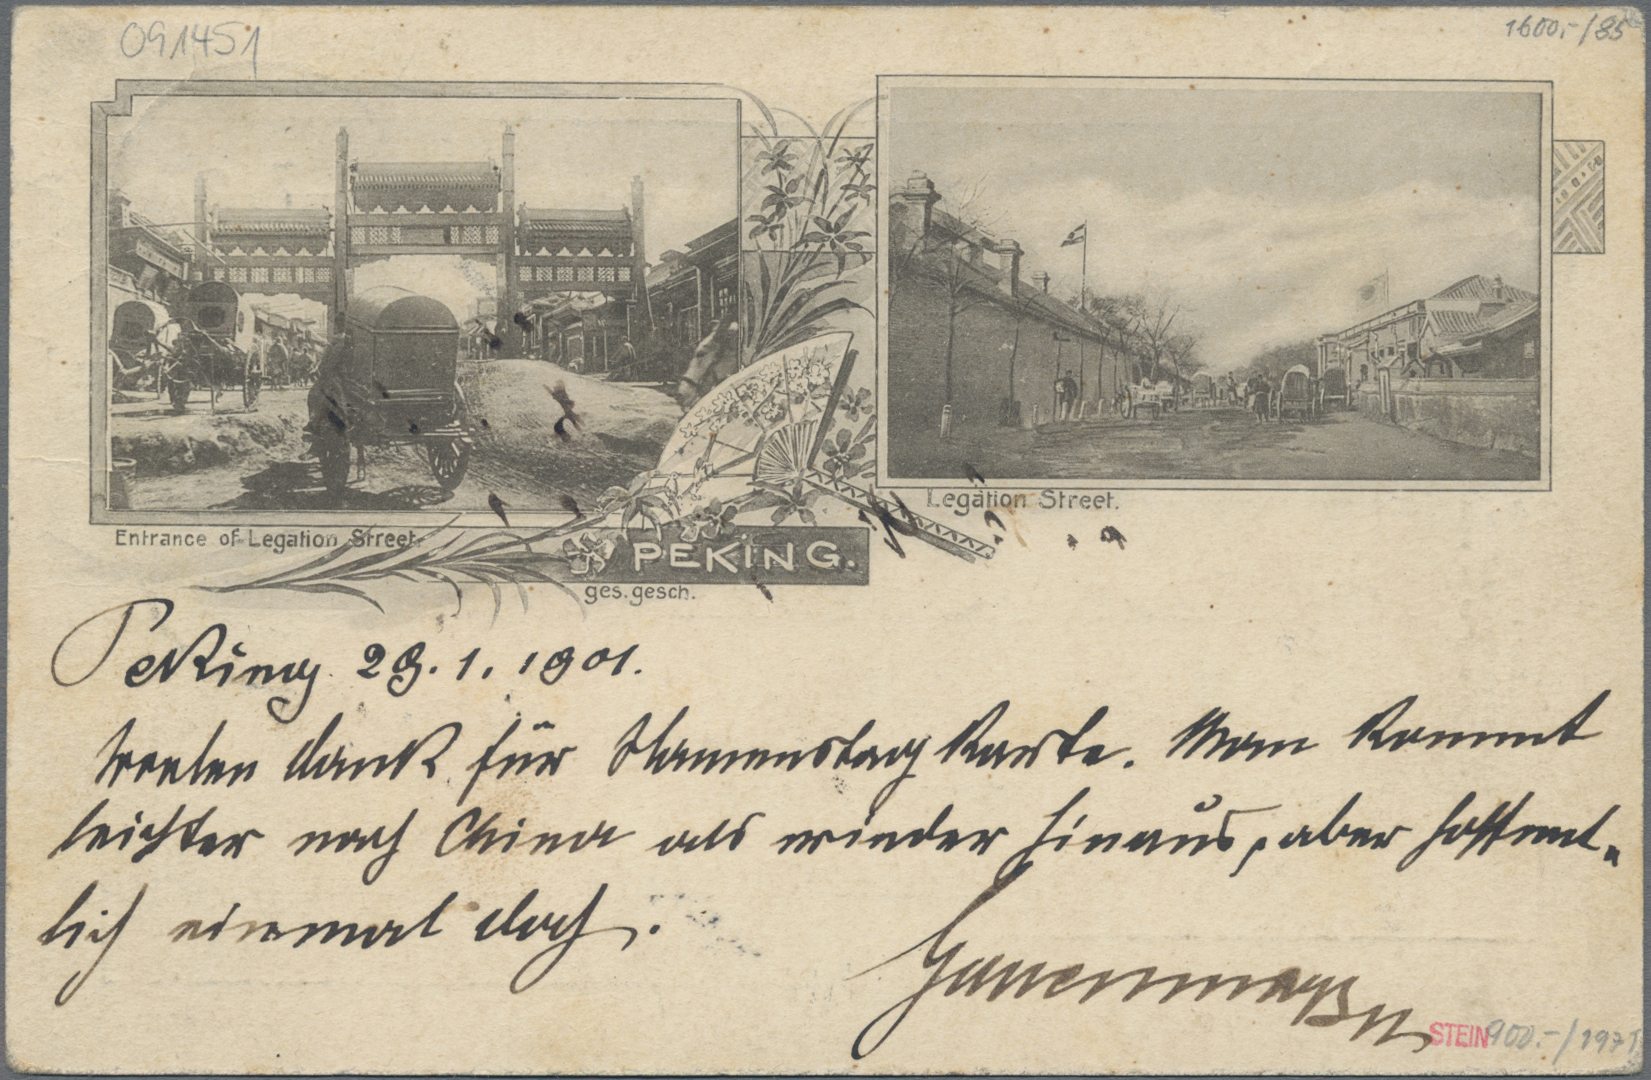 091451
1600,-/85
Entrance of Legation Street.
Legation Street.
PEKING.
ges. gesch.
Peking 29.1.1901.
Vielen Dank für Namenstag Karte. Man kommt
leichter nach China als wieder hinaus, aber hoffent-
lich einmal doch.
STEIN 900.-/1971